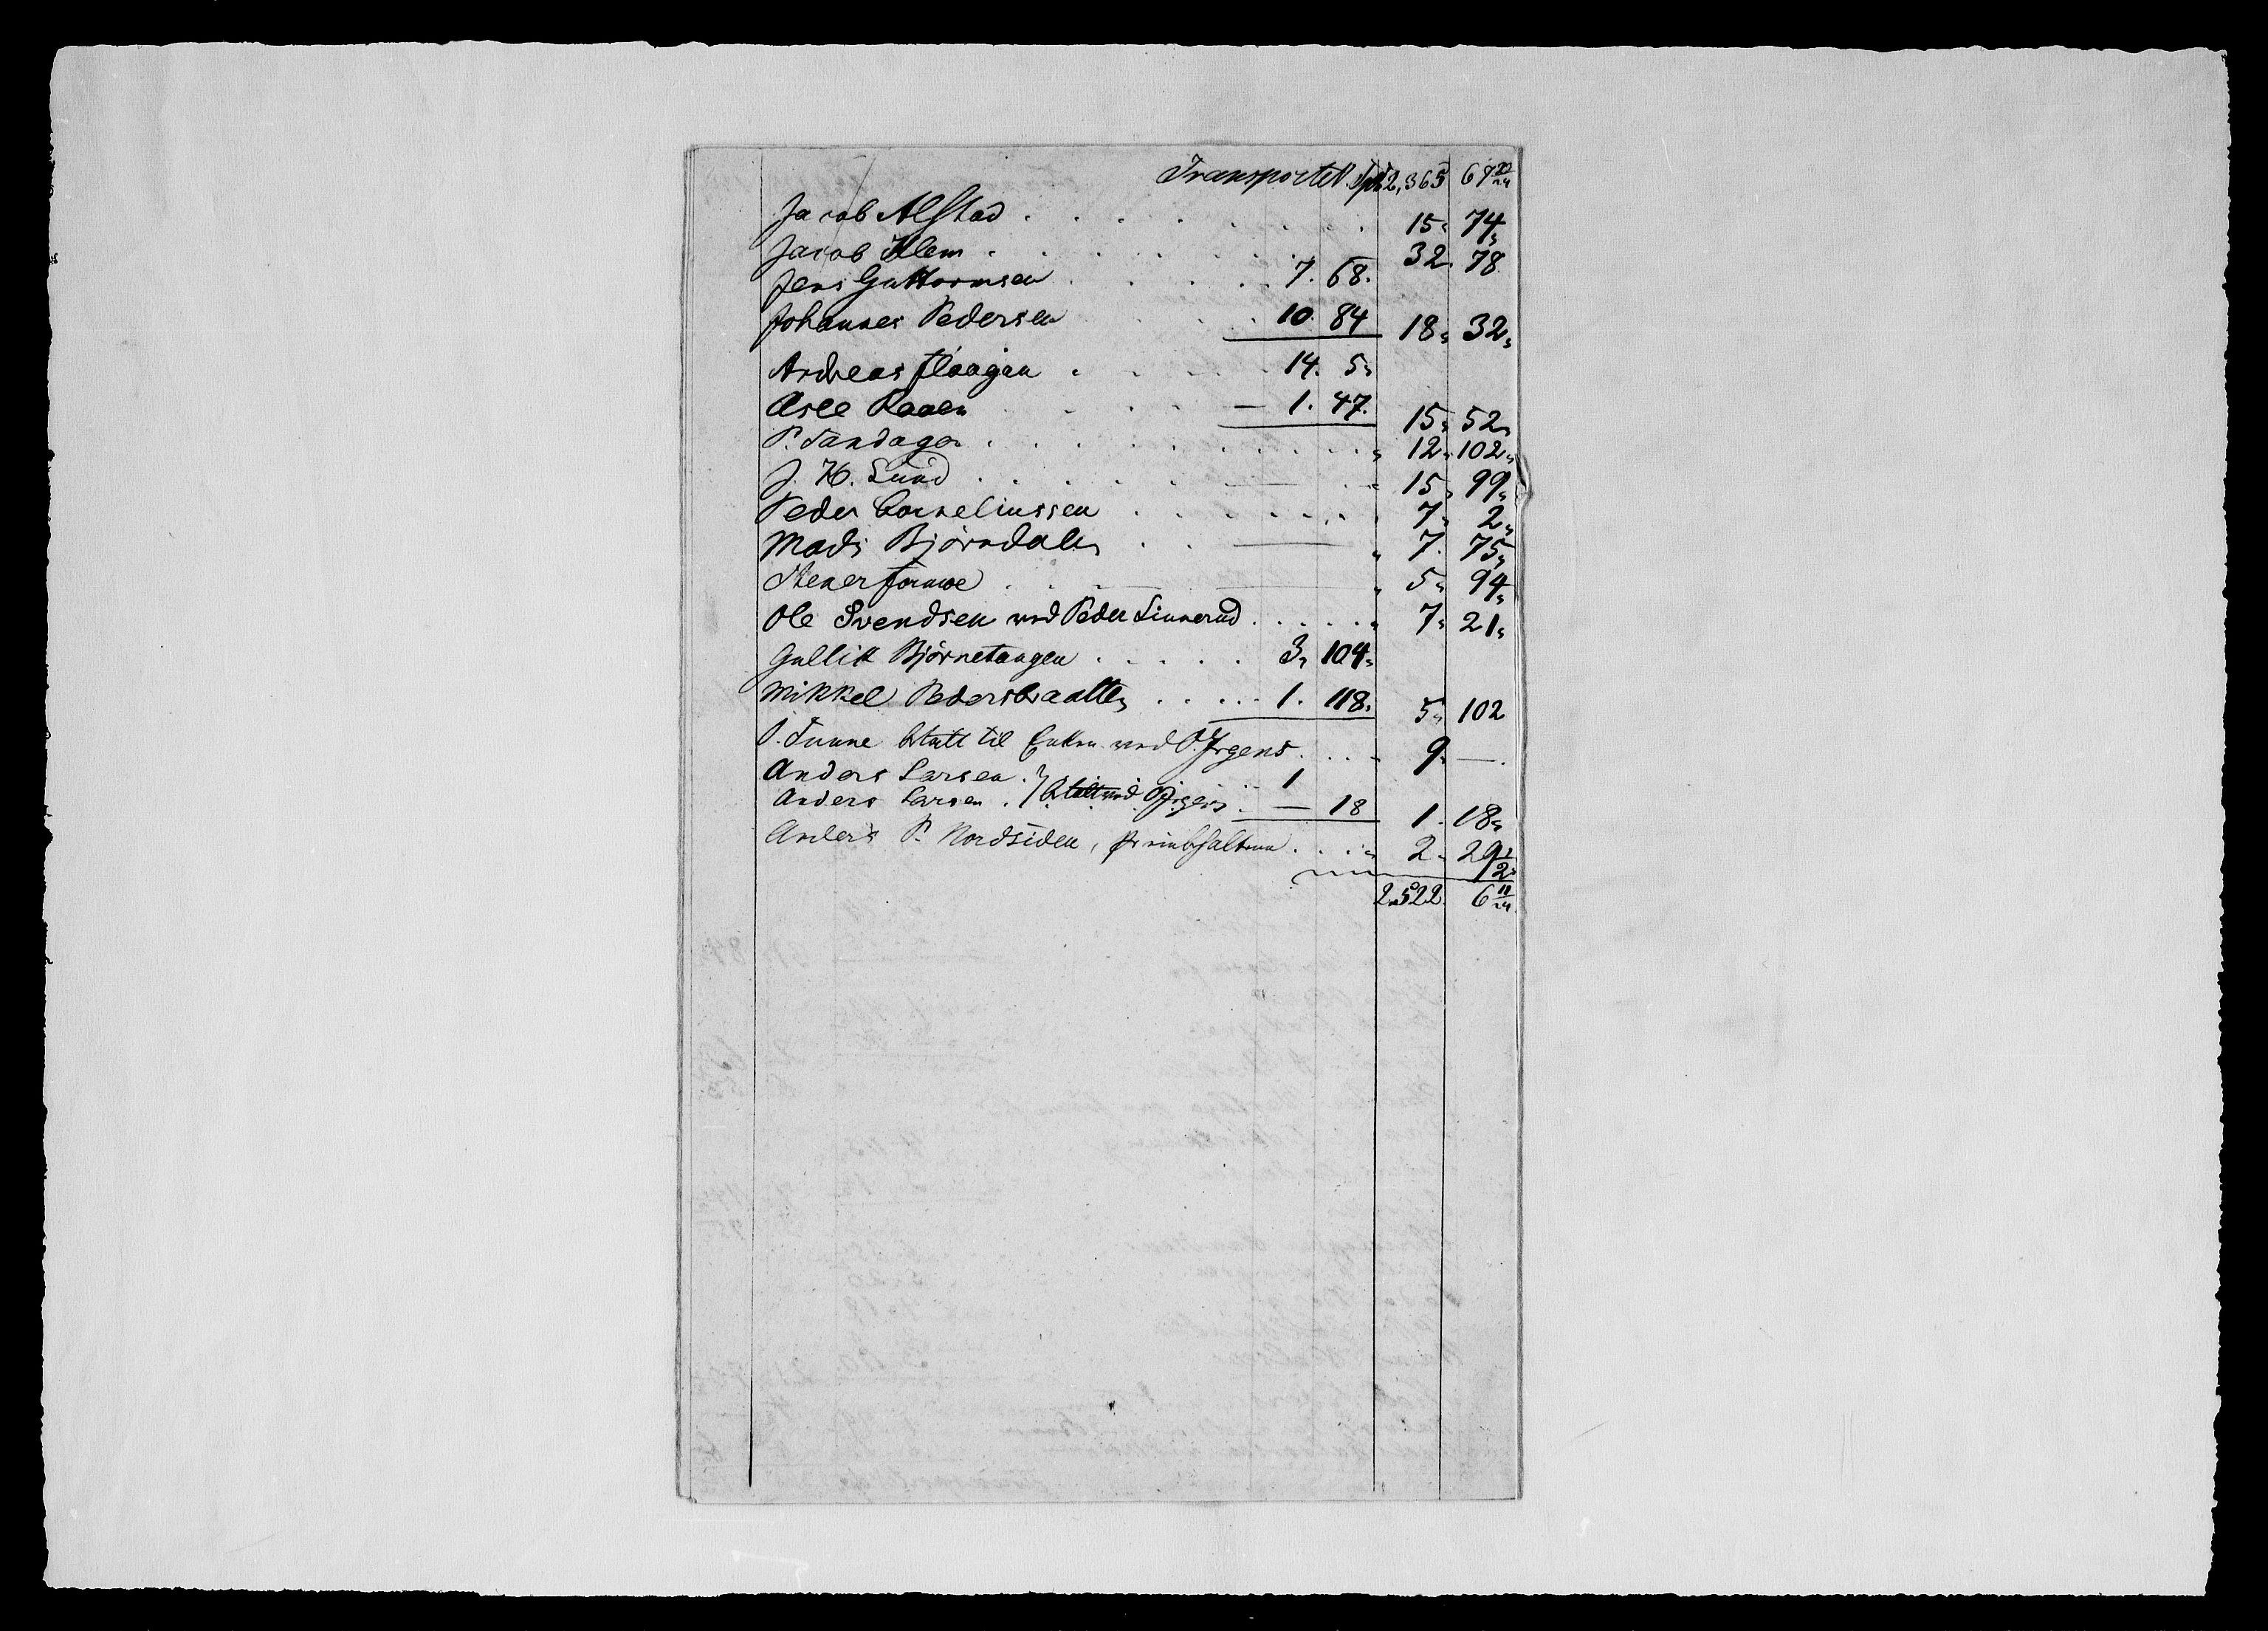 Transportet Spd 2,365 69 23/24
Jacob Alstad . . . . . . . . 15 " 74 "
Jacob Klem . . . . . . . . 32 " 78
Jens Guttormsen . . . . . 7. 68.
Johannes Pedersen . . . 10. 84 18 " 32 "
Andreas Haagen . . . . . 14. 5 "
Asle Raaen . . . . — 1. 47. 15 " 52 "
P. Sandager . . . . . . . . . " 12 " 102 "
J. H. Lund . . . . . . — . . " 15 " 99 "
Peder Corneliussen . . . . . . . 7 " 2 "
Mads Bjørndalen . . . — " 7. 75 "
Stener . . . . — " 5 " 94 "
Ole Svendsen ved Peder Linnerud . . . . . " 7 " 21 "
Gullik Bjørnetangen . . . . . 3 " 104 "
Mikkel Pedersbraatten . . . . . 1. 118. 5 " 102
P. Tunne betalt til Enken ved P. Irgens . . . " 9 " —.
Anders Larsen . } . . . 1
Anders Larsen . } betalt ved P. Irgens . — 18 1. 18 "
Anders P. Nordsiden, . . . . " 2 " 29 1/2 "
2,522. 6 11/24.